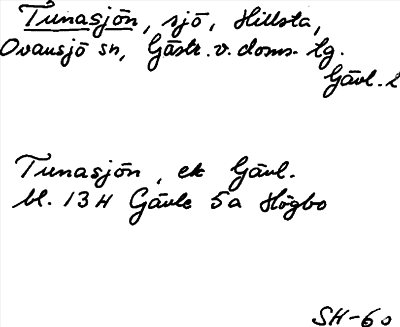 Tunasjön, sjö, Hillsta,
Ovansjö sn, Gästr. v. doms. lg.
Gävl. l
Tunasjön, ek Gävl.
bl. 13 H Gävle 5a Högbo
SH-60